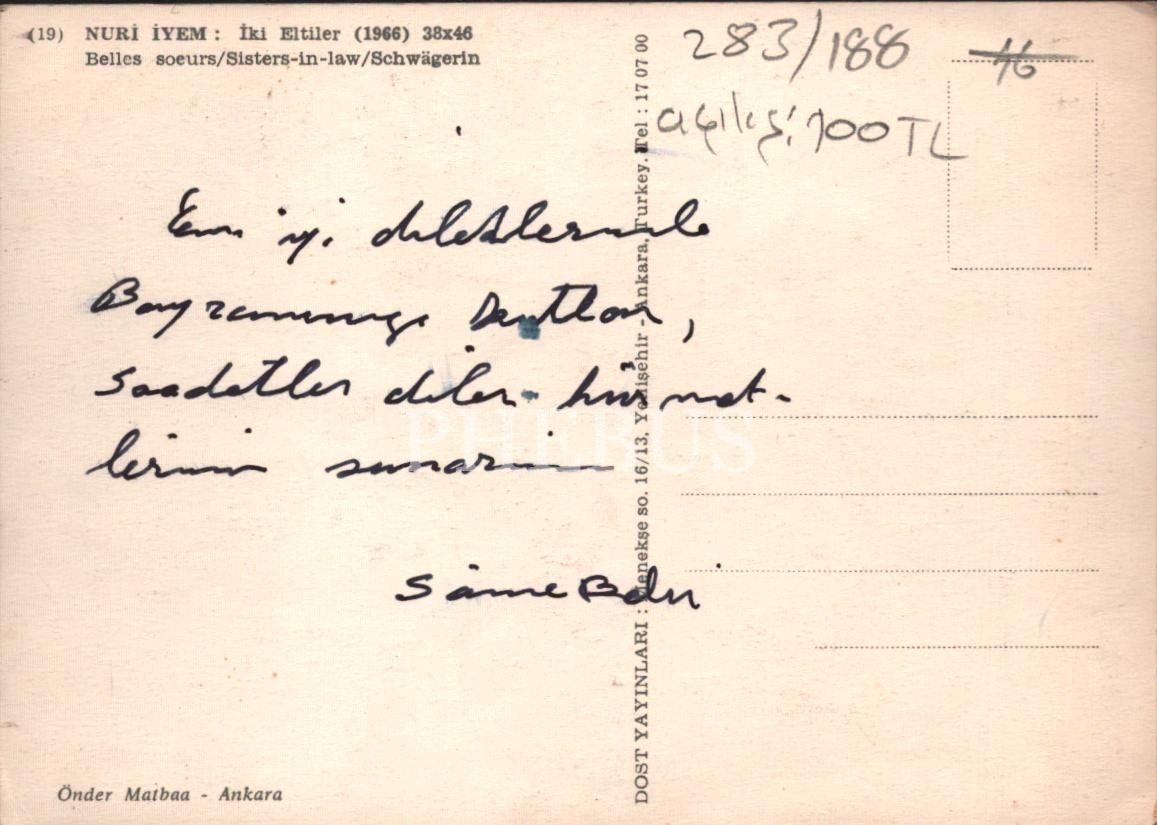 (19) NURİ İYEM : İki Eltiler (1966) 38x46
Belles soeurs/Sisters-in-law/Schwägerin
283/188
16
açılış: 100 TL
En iyi dileklerimle
Bayramınızı kutlar,
Saadetler diler hürmet-
lerimi sunarım
DOST YAYINLARI : Menekşe so. 16/13, Yenişehir - Ankara, Turkey. Tel : 17 07 00
PHEBUS
Önder Matbaa - Ankara